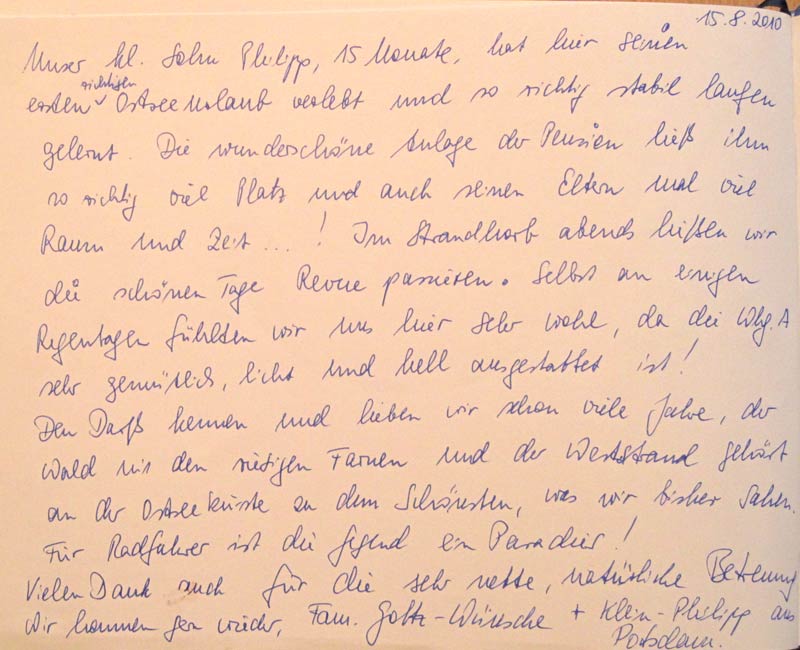 15.8.2010
Unser kl. Sohn Philipp, 15 Monate, hat hier seinen
richtigen
ersten Ostseeurlaub verlebt und so richtig stabil laufen
gelernt. Die wunderschöne Anlage der Pension ließ ihm
so richtig viel Platz und auch seinen Eltern mal viel
Raum und Zeit...! Im Strandkorb abends ließen wir
die schönen Tage Revue passieren. Selbst an einigen
Regentagen fühlten wir uns hier sehr wohl, da die Whg. A
sehr gemütlich, licht und hell ausgestattet ist!
Den Darß kennen und lieben wir schon viele Jahre, der
Wald mit den riesigen Farnen und der Weststrand gehört
an der Ostseeküste zu dem Schönsten, was wir bisher sahen.
Für Radfahrer ist die Gegend ein Paradies!
Vielen Dank auch für die sehr nette, natürliche Betreuung
Wir kommen gern wieder, Fam. Goltz-Wünsche + Klein-Philipp aus
Potsdam.